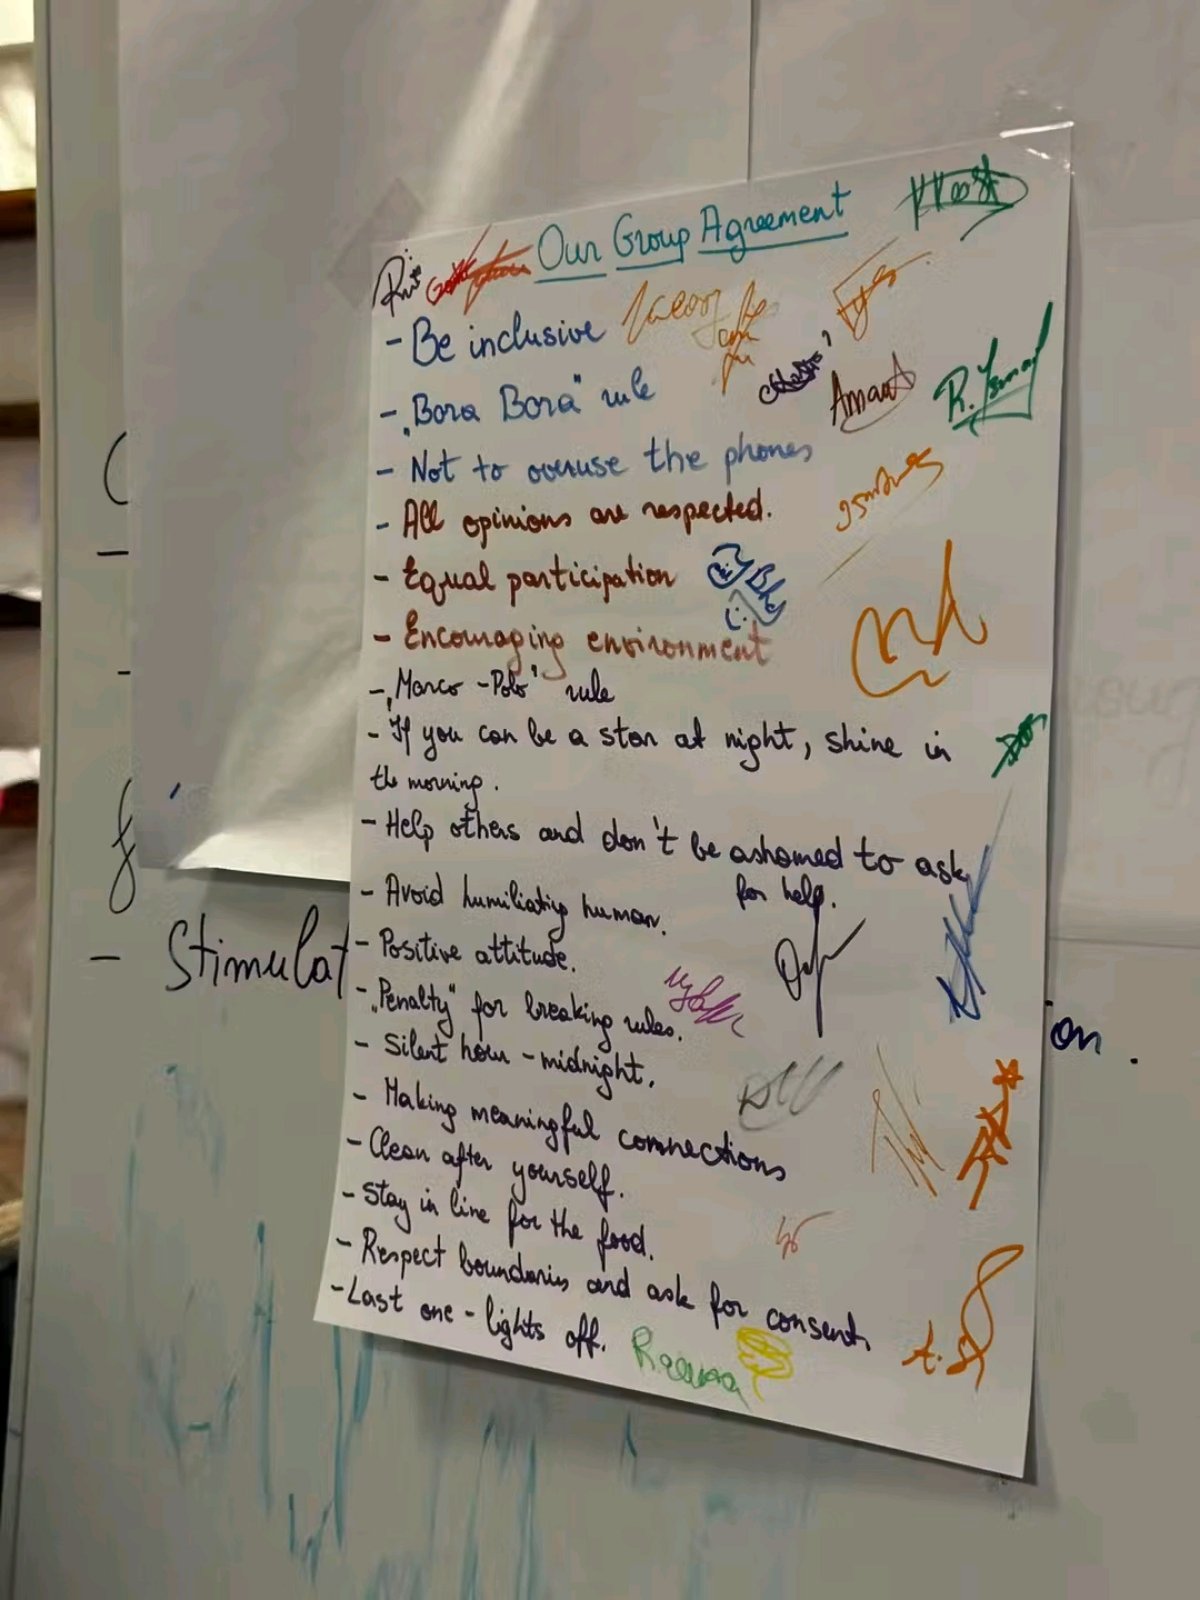 Our Group Agreement
- Be inclusive
- „Bora Bora" rule
- Not to overuse the phones
- All opinions are respected.
- Equal participation
- Encouraging environment
- „Marco-Polo" rule
- If you can be a star at night, shine in
the morning.
- Help others and don't be ashamed to ask
for help.
- Avoid humiliating human.
- Positive attitude.
- „Penalty" for breaking rules.
- Silent hour - midnight.
- Making meaningful connections
- Clean after yourself.
- Stay in line for the food.
- Respect boundaries and ask for consent.
- Last one - lights off.
R. Ismayl
A.
- Stimulat
on.